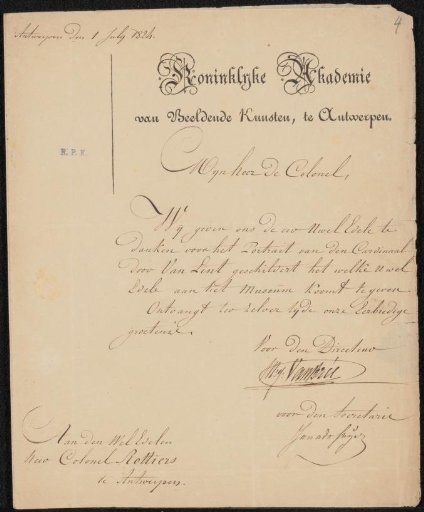 Antwerpen den 1 July 1824.
4
Koninklyke Akademie
van Beeldende Kunsten, te Antwerpen.
R. P. K.
Mynheer De Colonel,
Wy geven ons de eer UWel Edele te
danken voor het Portrait van den Cardinaal
door Van Lint geschildert het welke U wel
Edele aan het Museum komt te geven
Ontvangt ter zelver tyde onze Eerbiedige
groetenze.
Voor den Directeur
Van Brée
voor den Secretaris
Aan den Wel Edelen
Heer Colonel Rottiers
te Antwerpen.